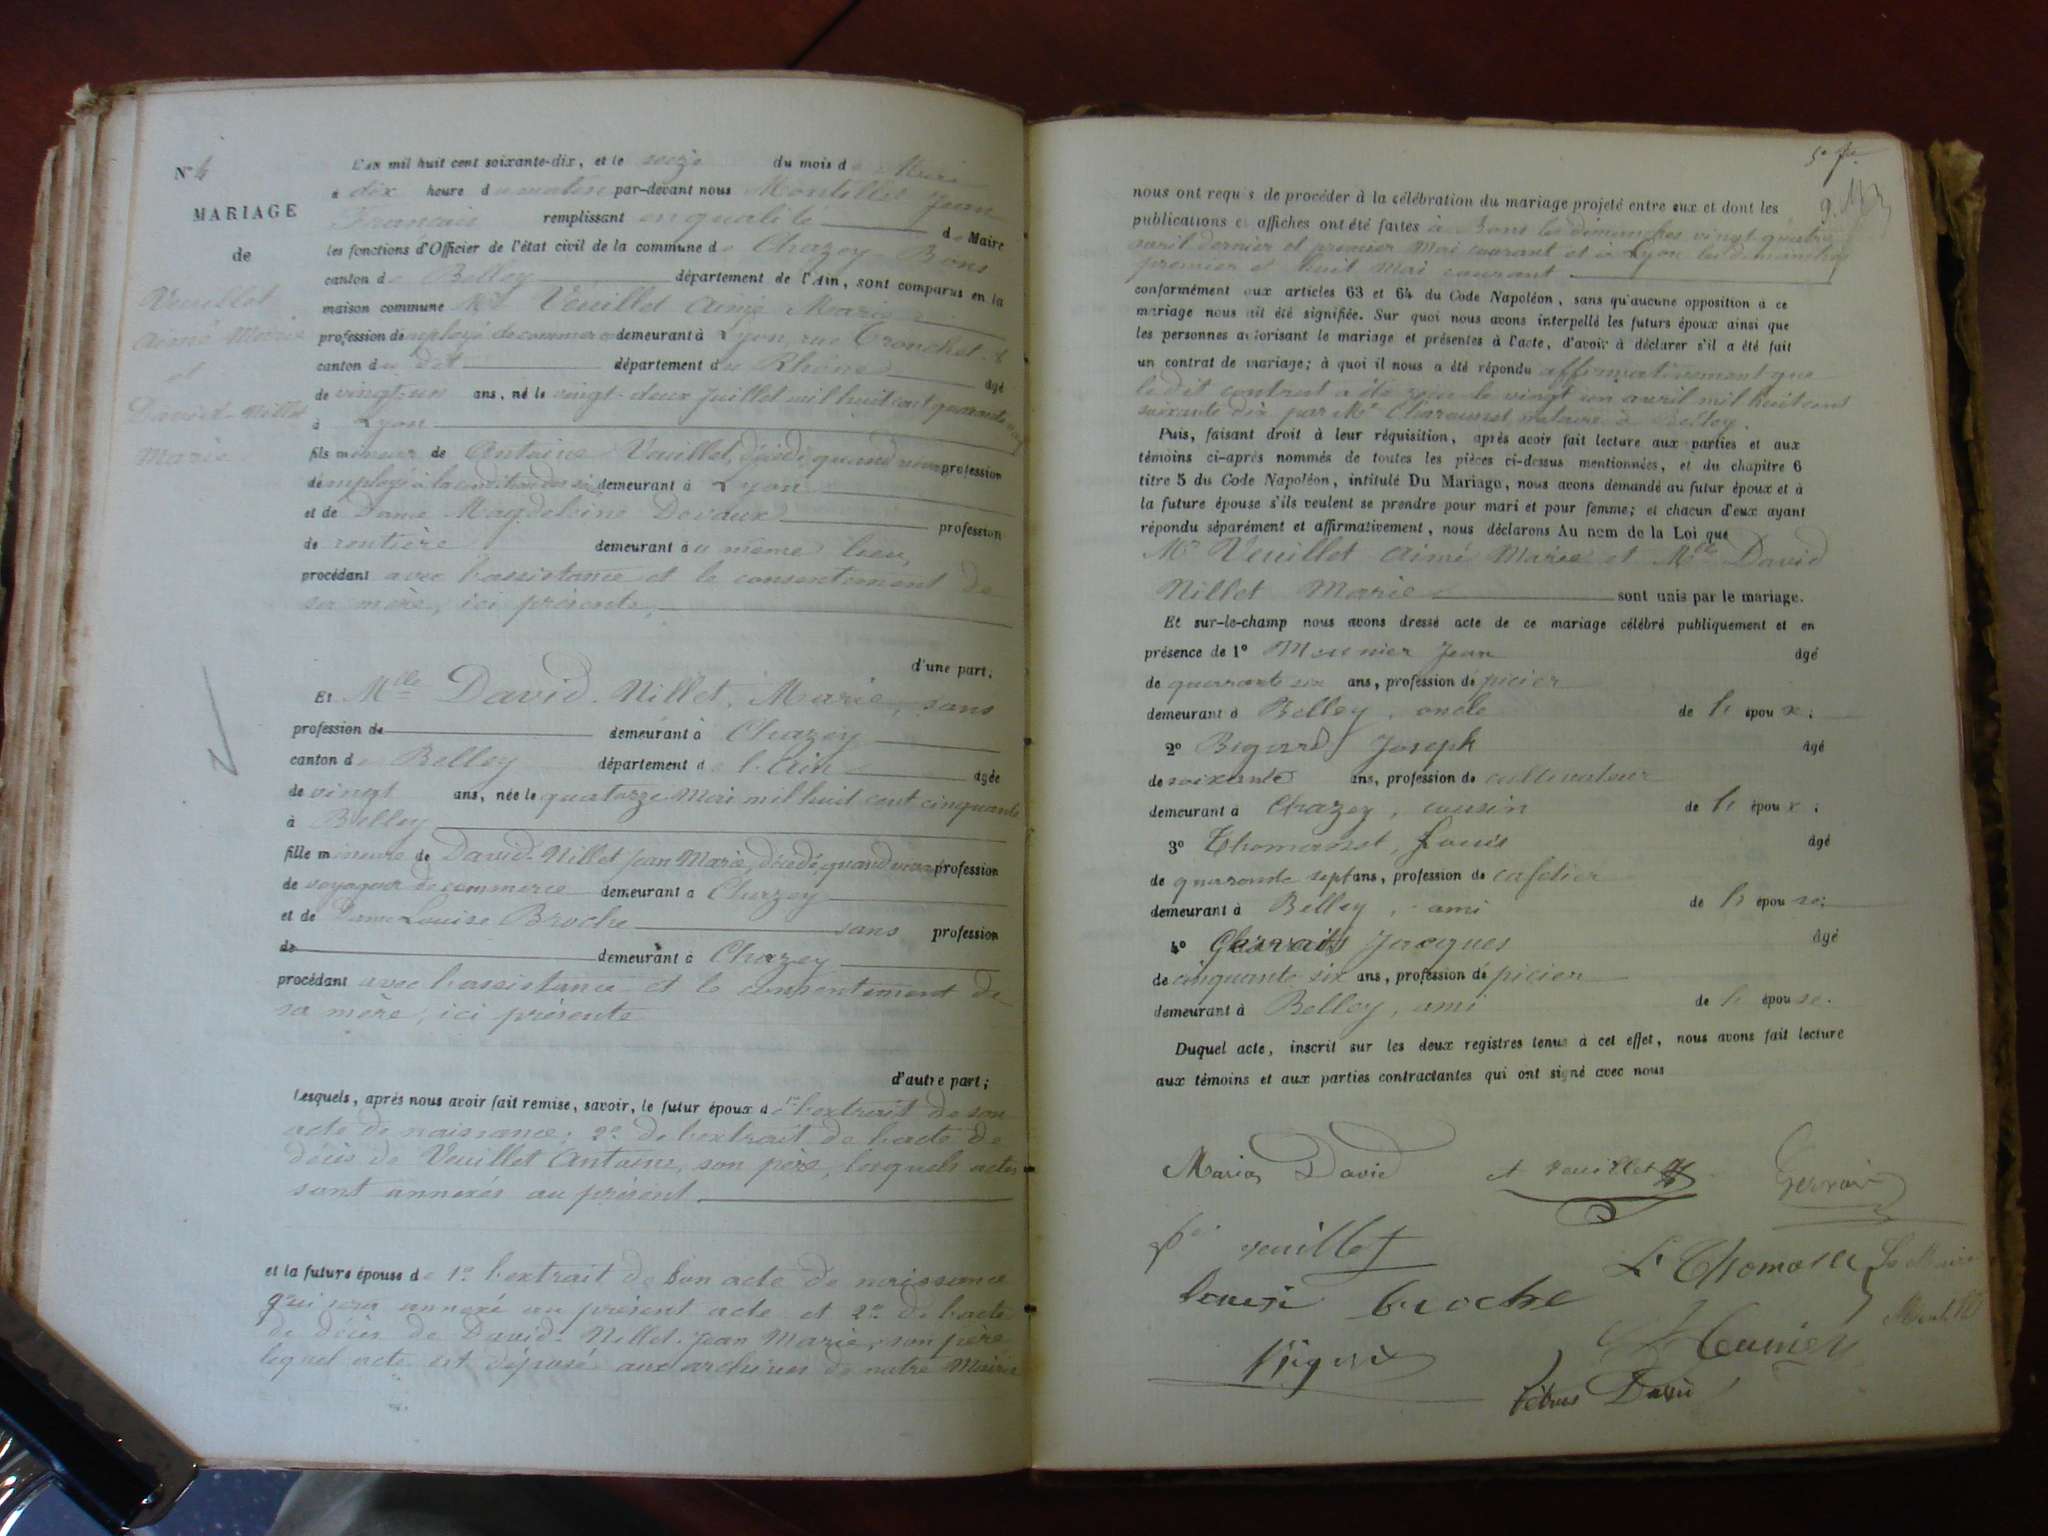 N° 4
MARIAGE
de
Veuillet
Aimé Marie
et
David-Nillet
Marie
L'an mil huit cent soixante-dix, et le seize du mois de Mai
à dix heure du matin par-devant nous Montillet Jean
Français remplissant en qualité de Maire
les fonctions d'Officier de l'état civil de la commune de Chazey Bons
canton de Belley département de l'Ain, sont comparus en la
maison commune Mr Veuillet Aimé Marie
profession d'employé de commerce demeurant à Lyon, rue Tronchet
canton du dit département du Rhône âgé
de vingt-un ans, né le vingt-deux Juillet mil huit cent quarante
à Lyon
fils mineur de Antoine Veuillet, décédé, quand vivait profession
d'employé à la condition des soies demeurant à Lyon
et de Dame Magdeleine Devaux profession
de rentière demeurant au même lieu,
procédant avec l'assistance et le consentement de
sa mère, ici présente,
d'une part;
Et Mlle David-Nillet, Marie, sans
profession de demeurant à Chazey
canton de Belley département de l'Ain âgée
de vingt ans, née le quatorze Mai mil huit cent cinquante
à Belley
fille mineure de David-Nillet Jean Marie, décédé, quand vivait profession
de voyageur de commerce demeurant à Chazey
et de Dame Louise Broche sans profession
de demeurant à Chazey
procédant avec l'assistance et le consentement de
sa mère, ici présente
d'autre part;
Lesquels, après nous avoir fait remise, savoir, le futur époux de 1° l'extrait de son
acte de naissance; 2° de l'extrait de l'acte de
décès de Veuillet Antoine, son père, lesquels actes
sont annexés au présent
et la future épouse de 1° l'extrait de son acte de naissance
qui sera annexé au présent acte et 2° de l'acte
de décès de David-Nillet Jean Marie, son père
lequel acte est déposé aux archives de notre Mairie
nous ont requis de procéder à la célébration du mariage projeté entre eux et dont les
publications et affiches ont été faites à Bons les dimanches vingt quatre
avril dernier et premier Mai courant et à Lyon les dimanches
premier et huit Mai courant
conformément aux articles 63 et 64 du Code Napoléon, sans qu'aucune opposition à ce
mariage nous ait été signifiée. Sur quoi nous avons interpellé les futurs époux ainsi que
les personnes autorisant le mariage et présentes à l'acte, d'avoir à déclarer s'il a été fait
un contrat de mariage; à quoi il nous a été répondu affirmativement que
le dit contrat a été reçu le vingt un avril mil huit cent
soixante dix par Me notaire à Belley.
Puis, faisant droit à leur réquisition, après avoir fait lecture aux parties et aux
témoins ci-après nommés de toutes les pièces ci-dessus mentionnées, et du chapitre 6
titre 5 du Code Napoléon, intitulé Du Mariage, nous avons demandé au futur époux et à
la future épouse s'ils veulent se prendre pour mari et pour femme; et chacun d'eux ayant
répondu séparément et affirmativement, nous déclarons Au nom de la Loi que
Mr Veuillet Aimé Marie et Mlle David
Nillet Marie sont unis par le mariage.
Et sur-le-champ nous avons dressé acte de ce mariage célébré publiquement et en
présence de 1° Meunier Jean âgé
de quarante six ans, profession d'épicier
demeurant à Belley, oncle de l'époux;
2° Bigurd Joseph âgé
de soixante ans, profession de cultivateur
demeurant à Chazey, cousin de l'époux;
3° Thomasset, Louis âgé
de quarante sept ans, profession de cafetier
demeurant à Belley, ami de l'épouse;
4° Gervais Jacques âgé
de cinquante six ans, profession d'épicier
demeurant à Belley, ami de l'épouse.
Duquel acte, inscrit sur les deux registres tenus à cet effet, nous avons fait lecture
aux témoins et aux parties contractantes qui ont signé avec nous
Maria David A Veuillet Gervais
veuillet
L. Thomasset Le Maire
Louise broche
Montillet
J Meunier
David